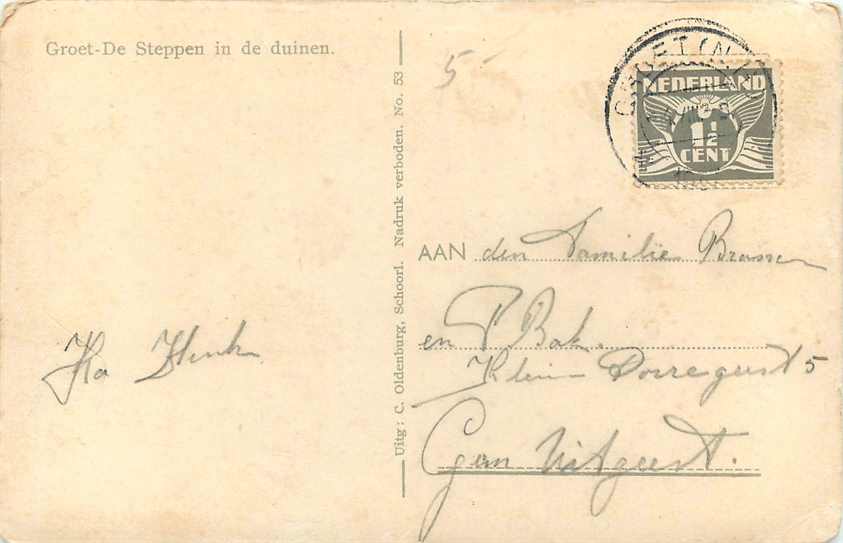 Groet-De Steppen in de duinen.
5
Uitg: C. Oldenburg, Schoorl. Nadruk verboden. No. 53
GROET (N.H.)
NEDERLAND
1½
CENT
AAN den Familie
en P Bak.
Klein Dorregeest 5
Uitgeest.
Ha Henk